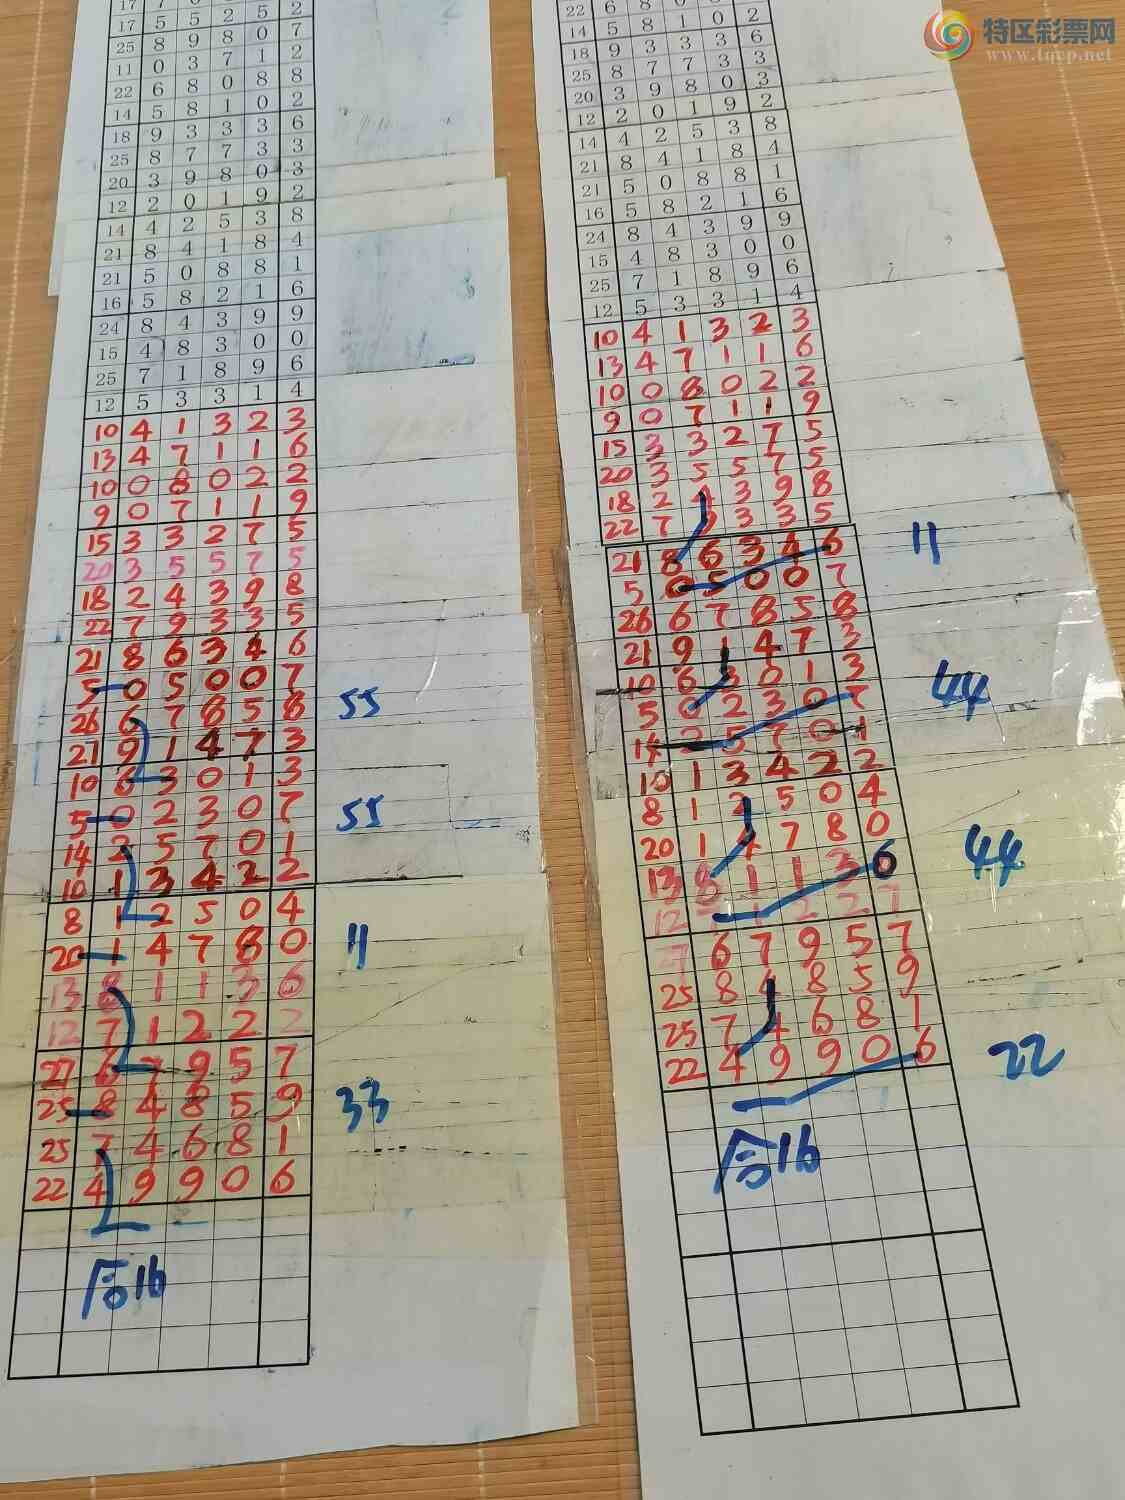 特区彩票网
www.tqcp.net
17 5 5 2 5 2
25 8 9 8 0 7
11 0 3 7 1 2
22 6 8 0 8 8
14 5 8 1 0 2
18 9 3 3 3 6
25 8 7 7 3 3
20 3 9 8 0 3
12 2 0 1 9 2
14 4 2 5 3 8
21 8 4 1 8 4
21 5 0 8 8 1
16 5 8 2 1 6
24 8 4 3 9 9
15 4 8 3 0 0
25 7 1 8 9 6
12 5 3 3 1 4
10 4 1 3 2 3
13 4 7 1 1 6
10 0 8 0 2 2
9 0 7 1 1 9
15 3 3 2 7 5
20 3 5 5 7 5
18 2 4 3 9 8
22 7 9 3 3 5
21 8 6 3 4 6
5 0 5 0 0 7
55
26 6 7 8 5 8
21 9 1 4 7 3
10 6 3 0 1 3
5 0 2 3 0 7
55
14 2 5 7 0 1
10 1 3 4 2 2
8 1 2 5 0 4
20 1 4 7 8 0
11
13 8 1 1 3 6
12 7 1 2 2 2
27 6 7 9 5 7
25 8 4 8 5 9
33
25 7 4 6 8 1
22 4 9 9 0 6
合16
22 6 8 0
14 5 8 1 0 2
18 9 3 3 3 6
25 8 7 7 3 3
20 3 9 8 0 3
12 2 0 1 9 2
14 4 2 5 3 8
21 8 4 1 8 4
21 5 0 8 8 1
16 5 8 2 1 6
24 8 4 3 9 9
15 4 8 3 0 0
25 7 1 8 9 6
12 5 3 3 1 4
10 4 1 3 2 3
13 4 7 1 1 6
10 0 8 0 2 2
9 0 7 1 1 9
15 3 3 2 7 5
20 3 5 5 7 5
18 2 4 3 9 8
22 7 9 3 3 5
11
21 8 6 3 4 6
5 0 5 0 0 7
26 6 7 8 5 8
21 9 1 4 7 3
10 6 3 0 1 3
44
5 0 2 3 0 7
14 2 5 7 0 1
10 1 3 4 2 2
8 1 2 5 0 4
20 1 4 7 8 0
44
13 8 1 1 3 6
12 1 2 2
27 6 7 9 5 7
25 8 4 8 5 9
25 7 4 6 8 1
22 4 9 9 0 6
22
合16